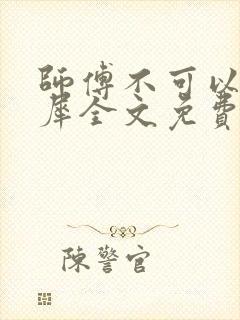 師傅不可以
犀全文免費
陳警官